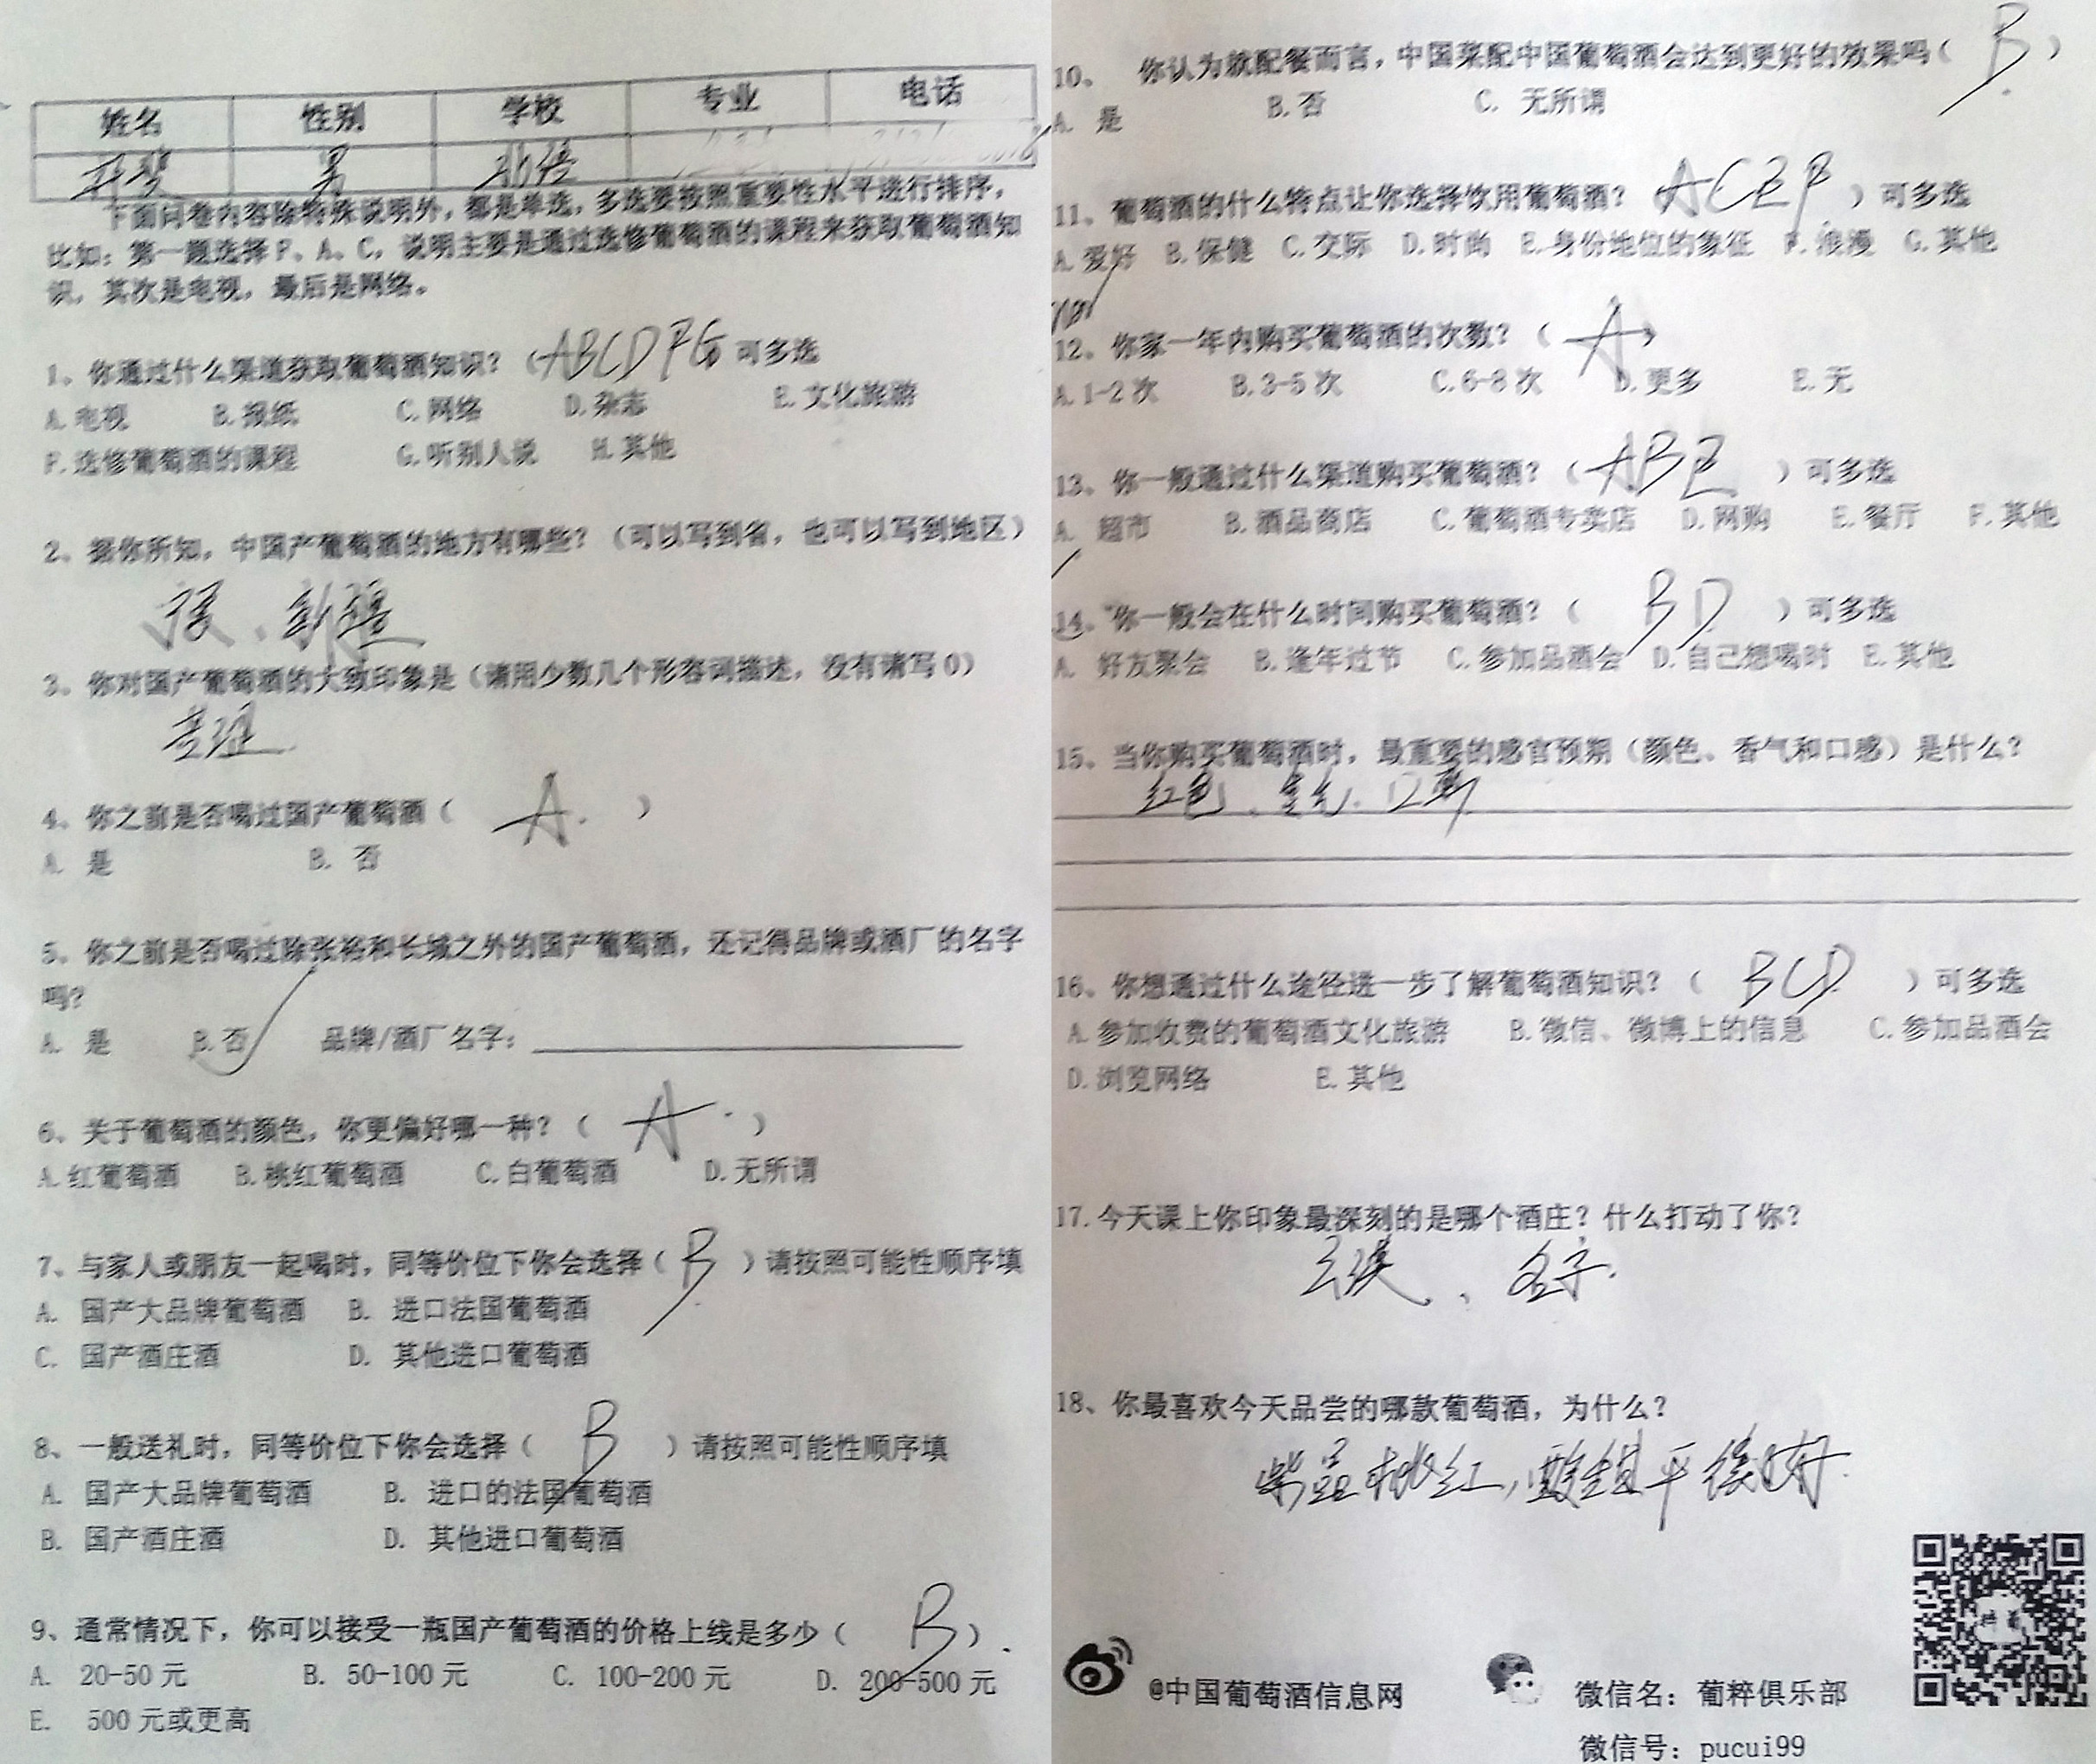 姓名 性别 学校 专业 电话
男
下面问卷内容除特殊说明外，都是单选，多选要按照重要性水平进行排序，
比如：第一题选择 F、A、C，说明主要是通过选修葡萄酒的课程来获取葡萄酒知
识，其次是电视，最后是网络。
1、你通过什么渠道获取葡萄酒知识？（ABCDFG 可多选
A.电视 B.报纸 C.网络 D.杂志 E.文化旅游
F.选修葡萄酒的课程 G.听别人说 H.其他
2、据你所知，中国产葡萄酒的地方有哪些？（可以写到省，也可以写到地区）
、新疆
3、你对国产葡萄酒的大致印象是（请用少数几个形容词描述，没有请写 0）
4、你之前是否喝过国产葡萄酒（ A. ）
A. 是 B. 否
5、你之前是否喝过除张裕和长城之外的国产葡萄酒，还记得品牌或酒厂的名字
吗？
A. 是 B.否 品牌/酒厂名字：
6、关于葡萄酒的颜色，你更偏好哪一种？（ A. ）
A.红葡萄酒 B.桃红葡萄酒 C.白葡萄酒 D.无所谓
7、与家人或朋友一起喝时，同等价位下你会选择（ B ）请按照可能性顺序填
A. 国产大品牌葡萄酒 B. 进口法国葡萄酒
C. 国产酒庄酒 D. 其他进口葡萄酒
8、一般送礼时，同等价位下你会选择（ B ）请按照可能性顺序填
A. 国产大品牌葡萄酒 B. 进口的法国葡萄酒
B. 国产酒庄酒 D. 其他进口葡萄酒
9、通常情况下，你可以接受一瓶国产葡萄酒的价格上线是多少（ B ）.
A. 20-50 元 B. 50-100 元 C. 100-200 元 D. 200-500 元
E. 500 元或更高
10、 你认为就配餐而言，中国菜配中国葡萄酒会达到更好的效果吗（ B ）
A. 是 B.否 C. 无所谓
11、葡萄酒的什么特点让你选择饮用葡萄酒？（ACEF ）可多选
A.爱好 B.保健 C.交际 D.时尚 E.身份地位的象征 F.浪漫 G.其他
12、你家一年内购买葡萄酒的次数？（ A ）
A.1-2 次 B.3-5 次 C.6-8 次 D.更多 E.无
13、你一般通过什么渠道购买葡萄酒？（ ABE ）可多选
A. 超市 B.酒品商店 C.葡萄酒专卖店 D.网购 E.餐厅 F.其他
14、你一般会在什么时间购买葡萄酒？（ BD ）可多选
A. 好友聚会 B.逢年过节 C.参加品酒会 D.自己想喝时 E.其他
15、当你购买葡萄酒时，最重要的感官预期（颜色、香气和口感）是什么？
红色、香气、口感
16、你想通过什么途径进一步了解葡萄酒知识？（ BCD ）可多选
A.参加收费的葡萄酒文化旅游 B.微信、微博上的信息 C.参加品酒会
D.浏览网络 E.其他
17.今天课上你印象最深刻的是哪个酒庄？什么打动了你？
、名字.
18、你最喜欢今天品尝的哪款葡萄酒，为什么？
紫晶桃红，酸甜平衡好.
@中国葡萄酒信息网
微信名：葡粹俱乐部
微信号：pucui99